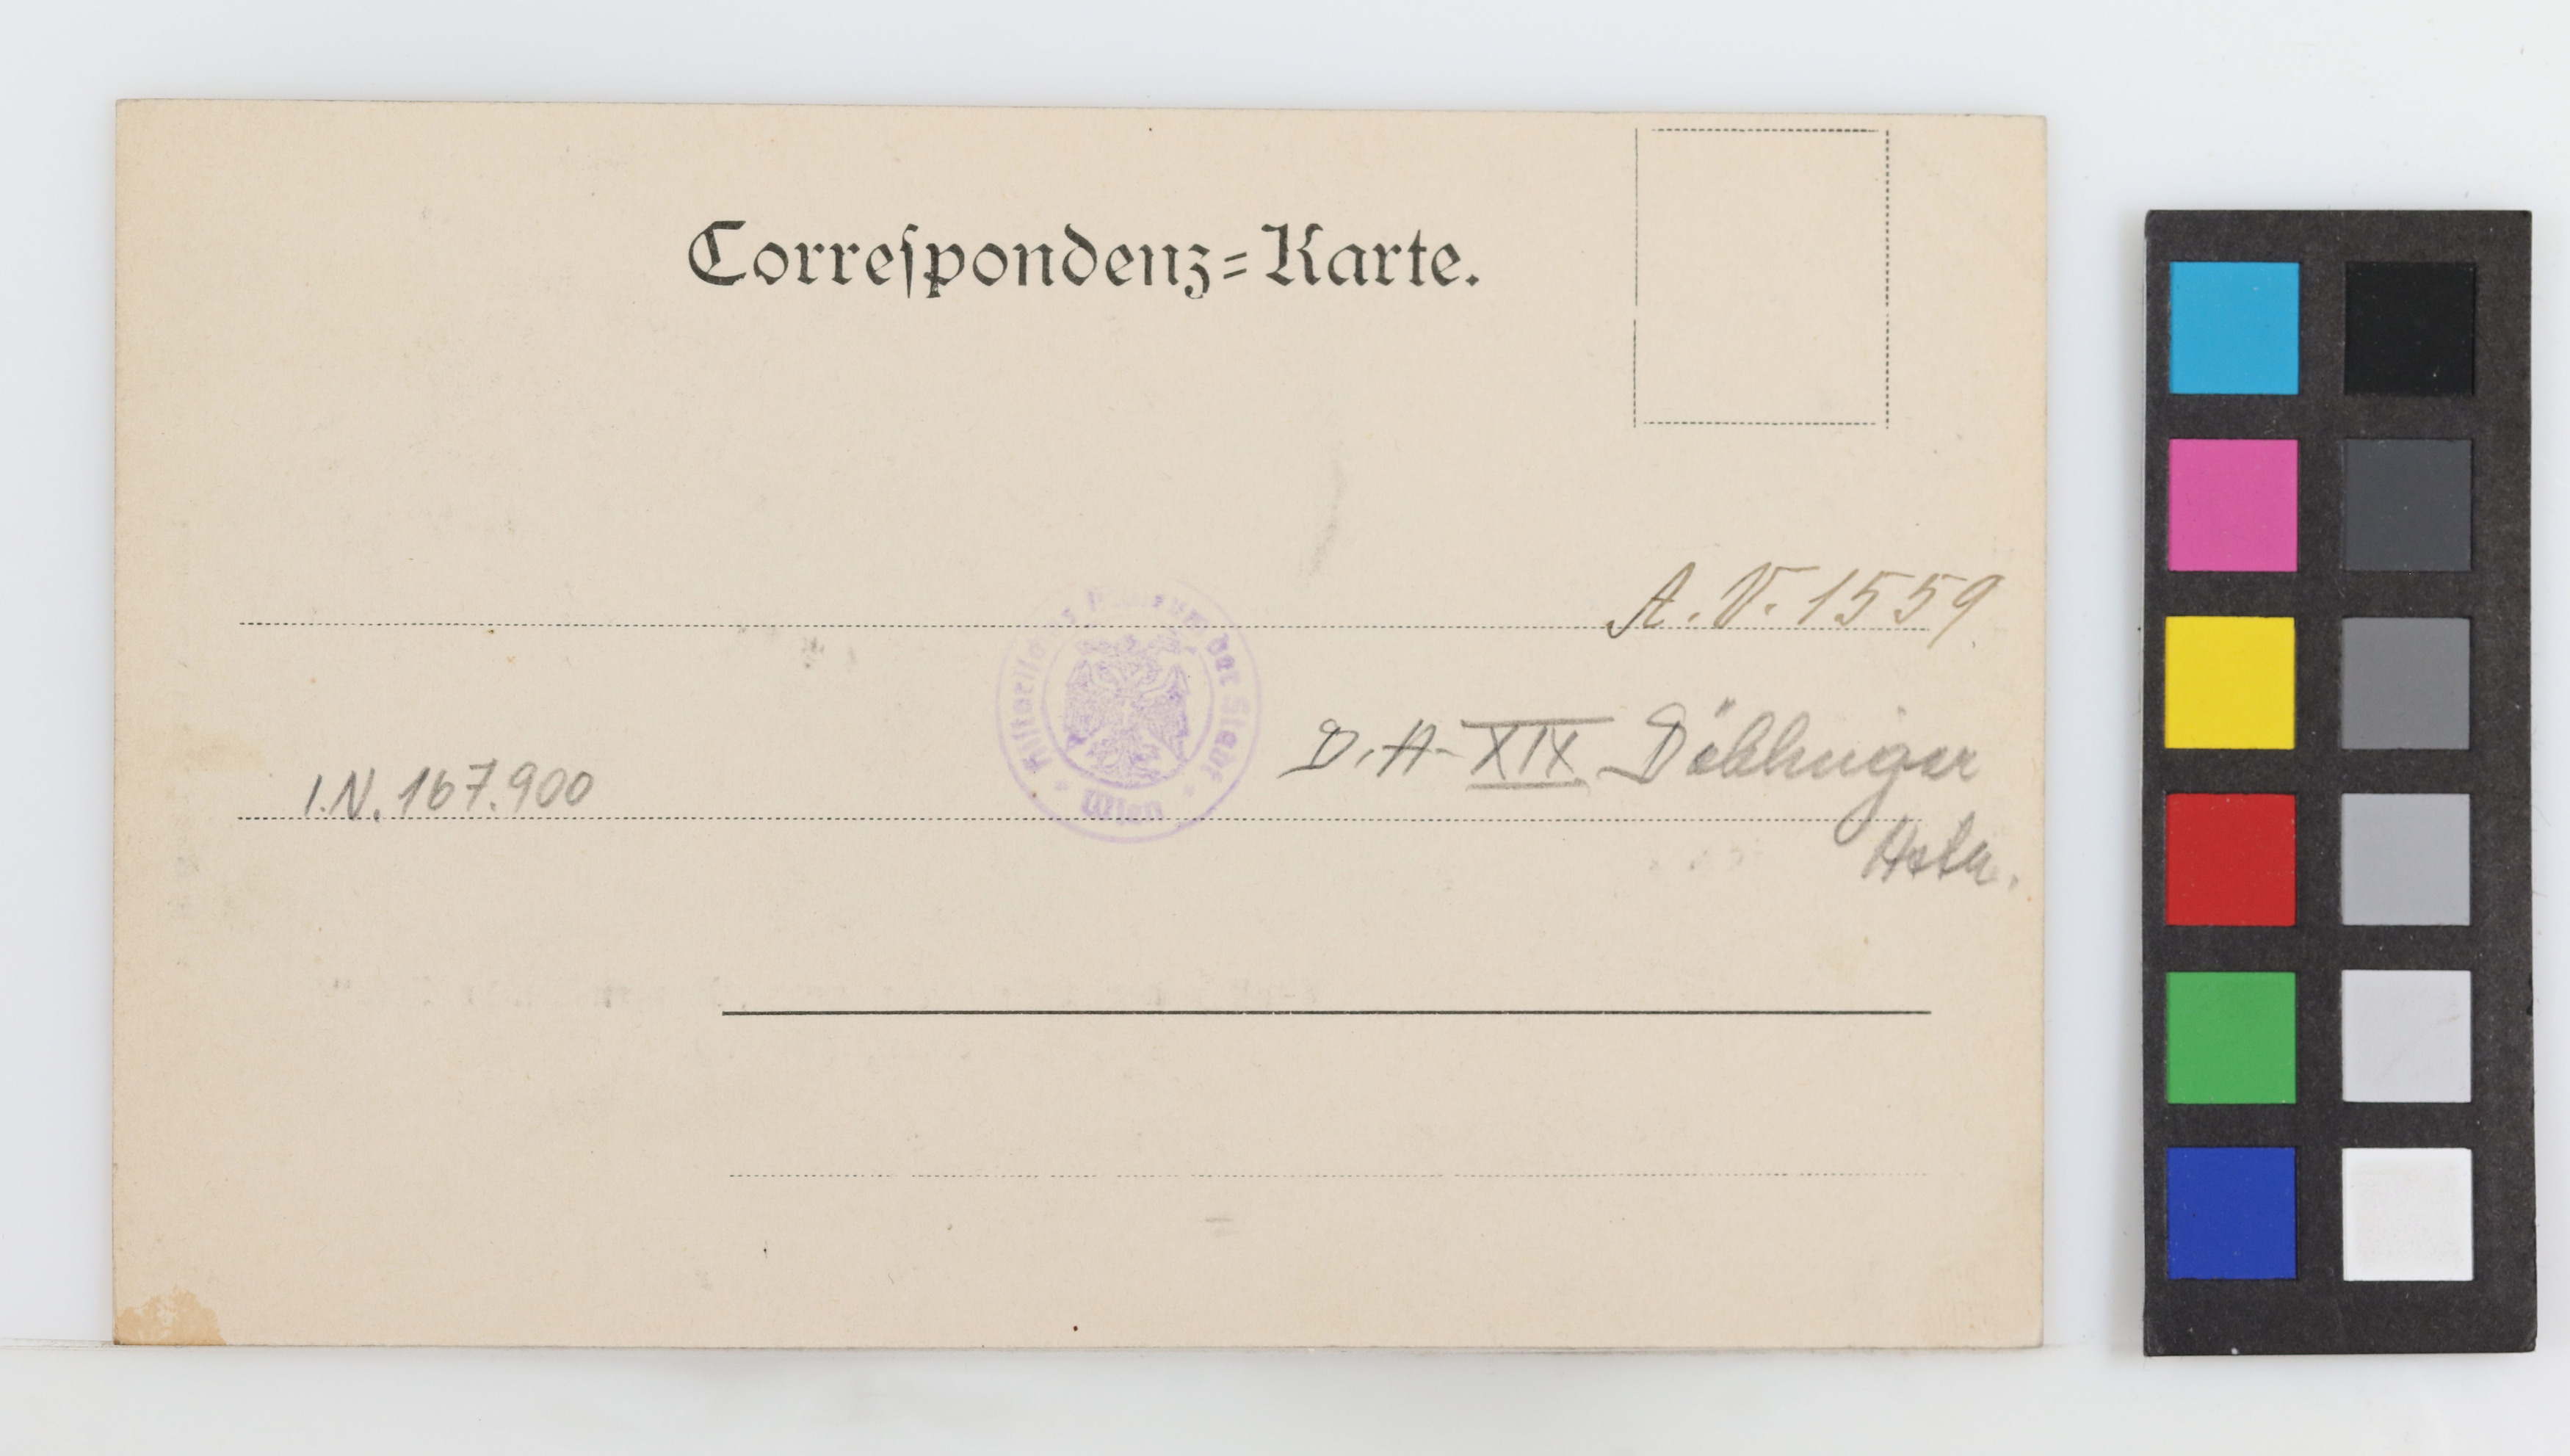 Correſpondenz=Karte.
A.V. 1559
Historisches Museum der Stadt
Wien
D.A. XIX Döblinger
I.N. 167.900